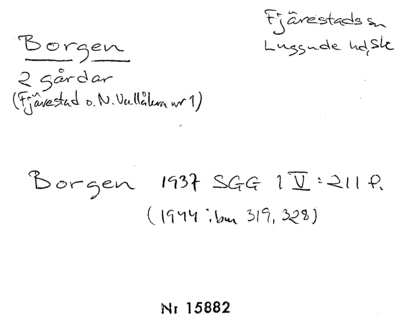 Borgen
Fjärestads sn
Luggude hd, Sk
2 gårdar
(Fjärestad o. N. Vallåkra nr 1)
Borgen 1937 SGG 1 V : 211 f.
(1944 ibm 319, 328)
Nr 15882